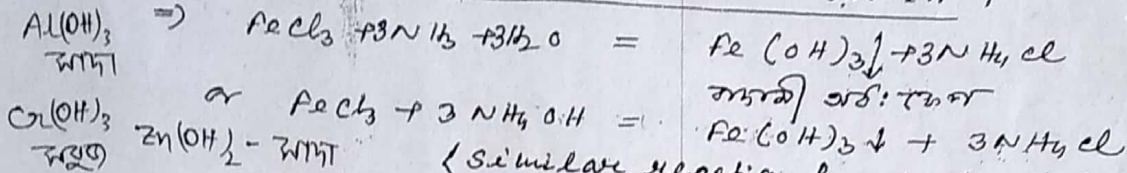 Al(OH)₃ ⇒ FeCl₃ + 3NH₃ + 3H₂O = Fe(OH)₃↓ + 3NH₄Cl
সাদা
বাদামী অধঃক্ষেপ
Cr(OH)₃ or FeCl₃ + 3NH₄OH = Fe(OH)₃↓ + 3NH₄Cl
সবুজ Zn(OH)₂ - সাদা (Similar